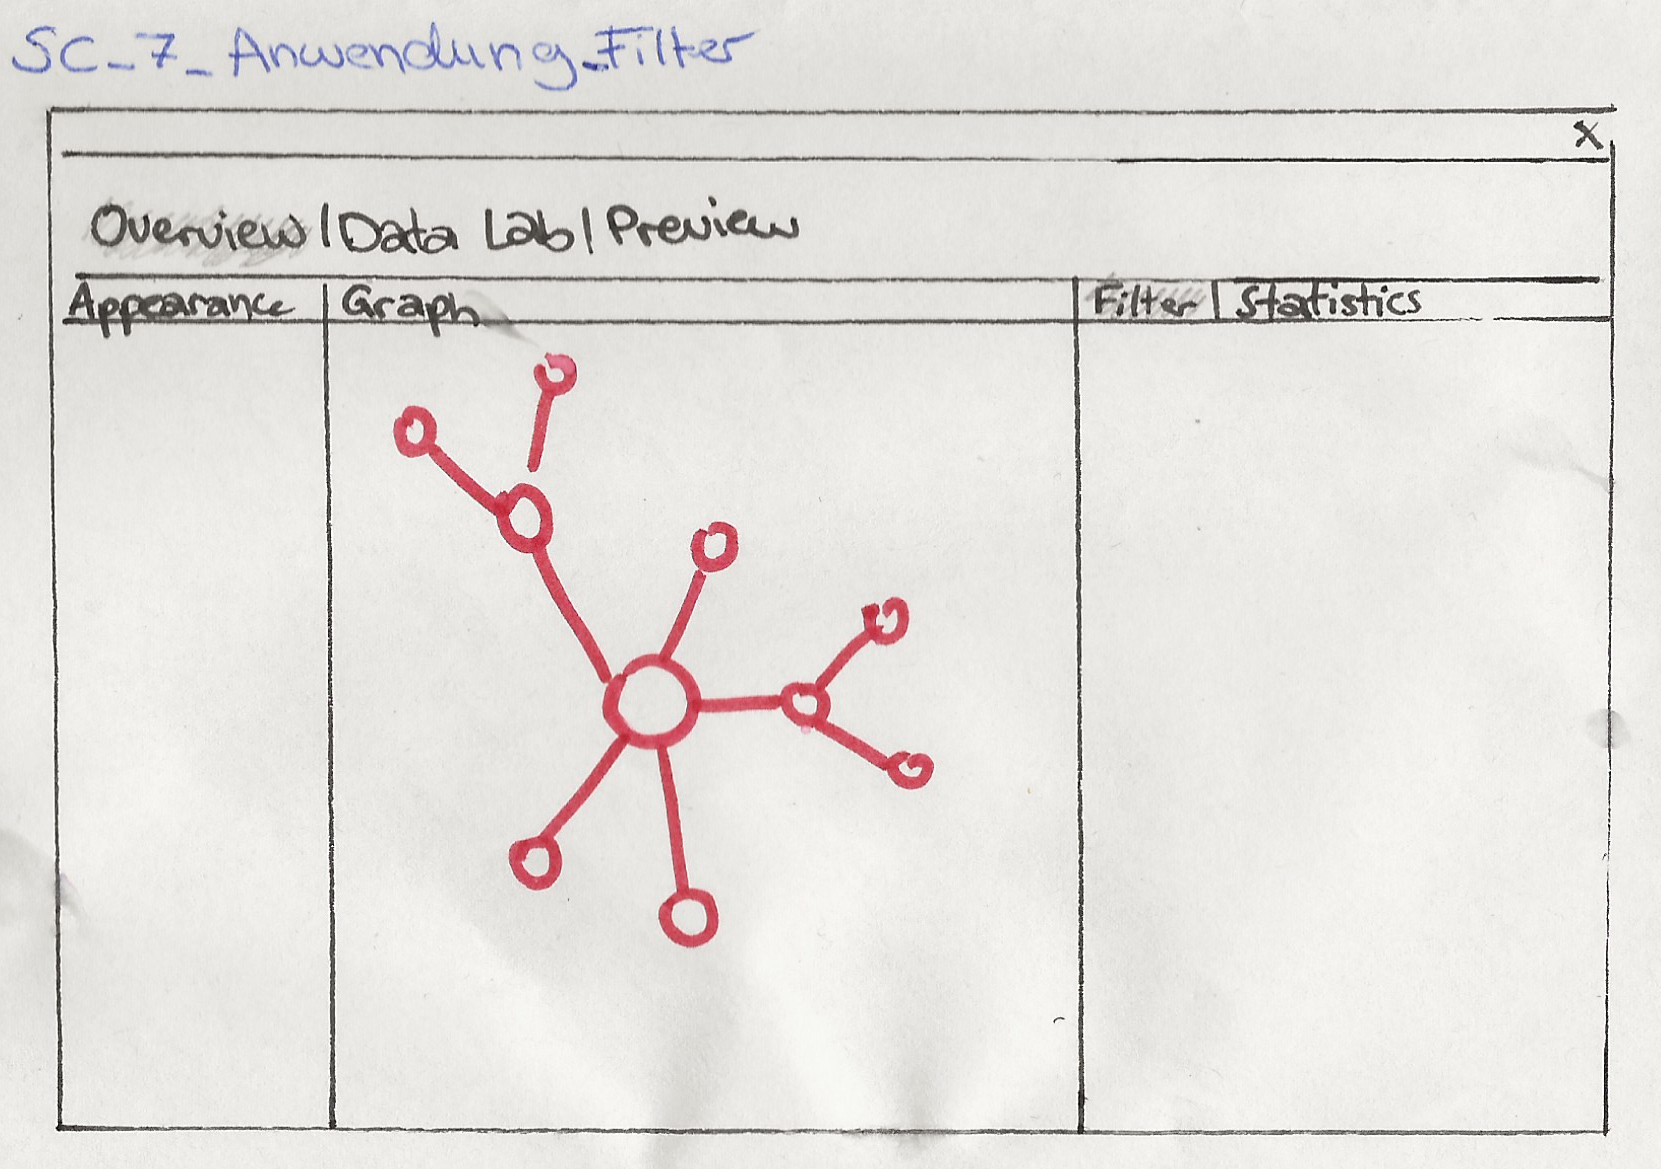 SC_7_Anwendung_Filter
X
Overview | Data Lab | Preview
Appearance | Graph | Filter | Statistics